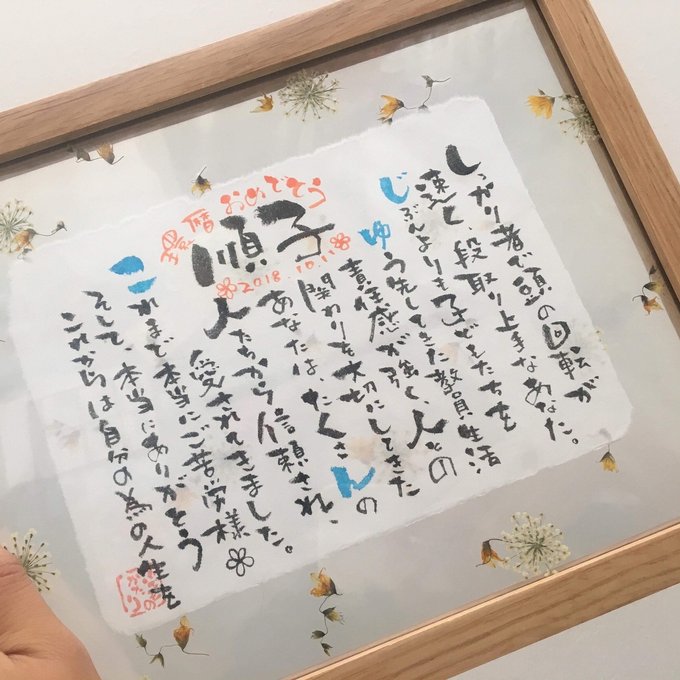 還暦おめでとう
順子
2018.10.11
しっかり者で頭の回転が
速く、段取り上手なあなた。
じぶんよりも子どもたちを
ゆう先してきた教員生活
責任感が強く、人との
関わりを大切にしてきた
あなたは、たくさんの
人たちから信頼され、
愛されてきました。
これまで本当にご苦労様
そして、本当にありがとう
これからは自分の為の人生を